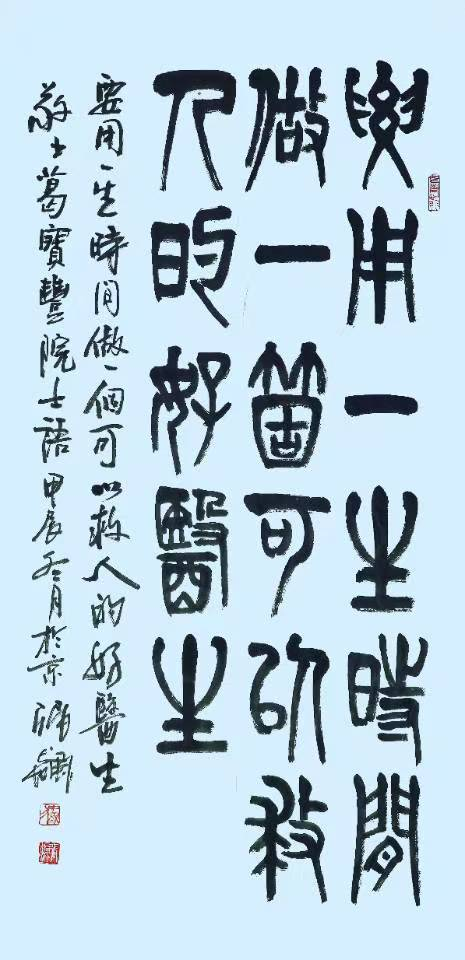 要用一生時間
做一箇可以救
人的好醫生
要用一生時間做一個可以救人的好醫生
敬葛寶豐院士語甲辰冬月於京